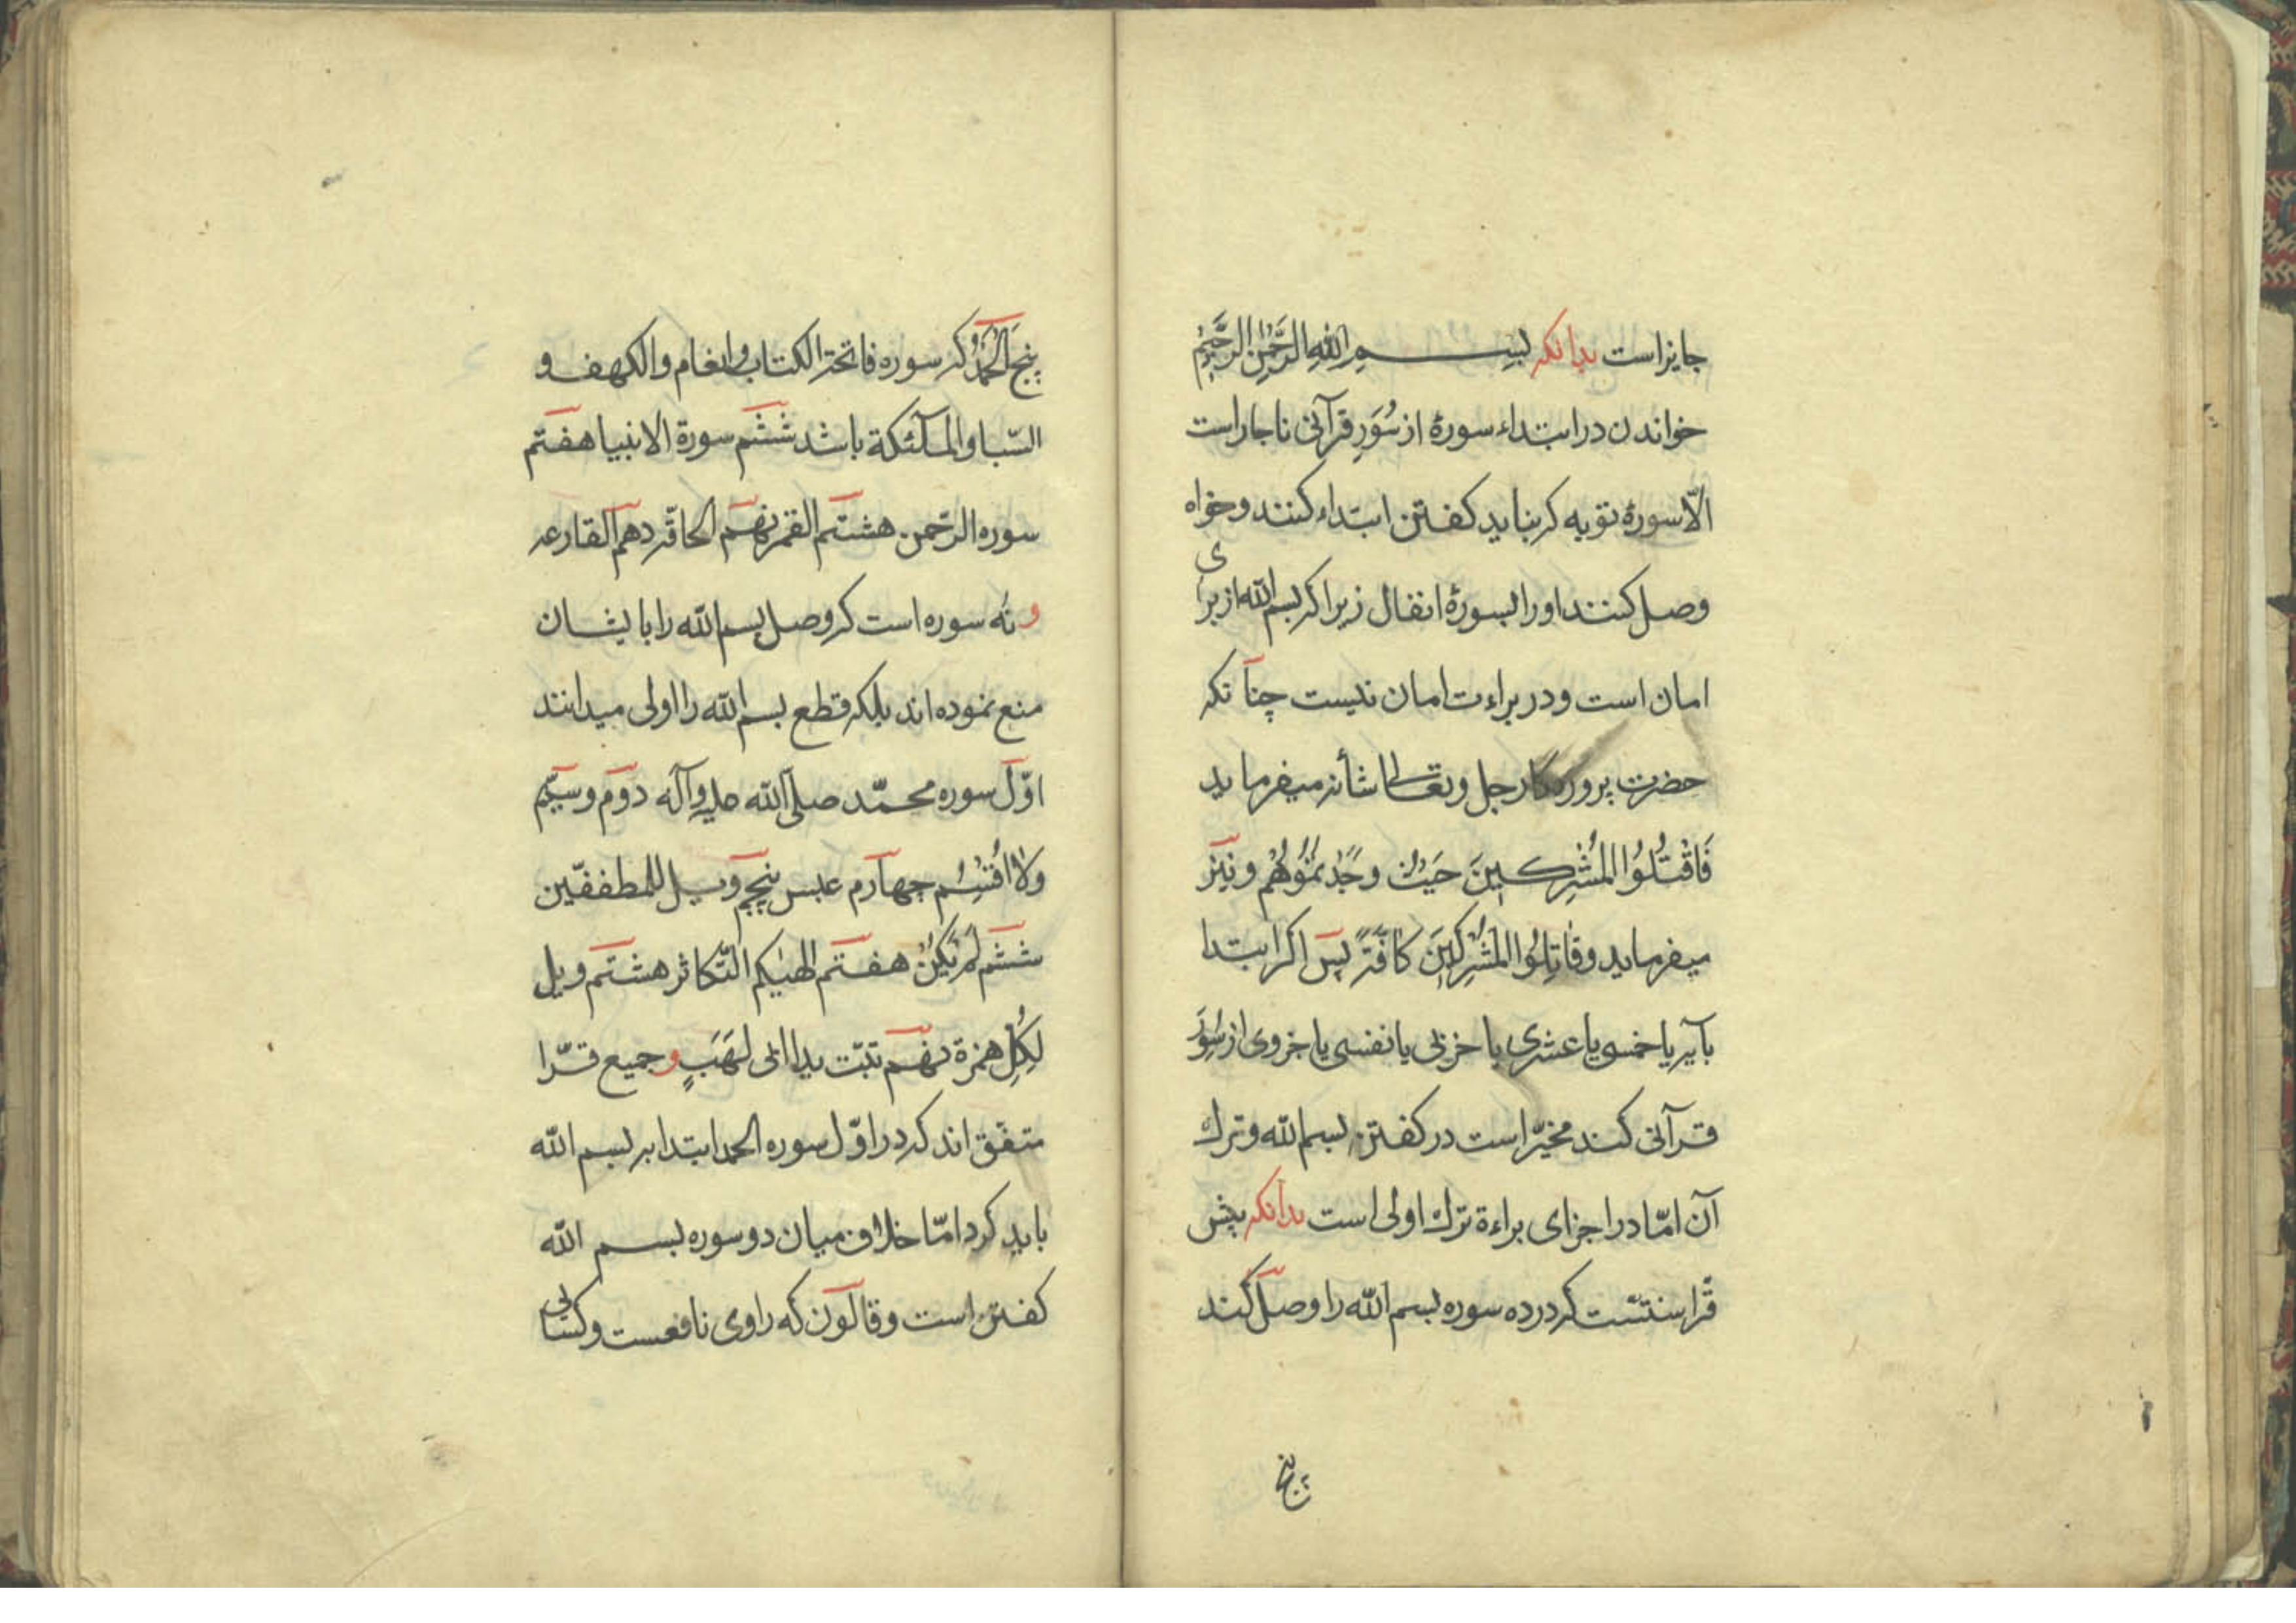 جایز است بدانکه بسم الله الرحمن الرحیم
خواندن در ابتداء سورهٔ از سُوَرِ قرآنی ناچار است
الّا سورهٔ توبه که نباید کفتن ابتداء کنند و خواه
وصل کنند او را بسورهٔ انفال زیرا که بسم الله از برای
امان است و در براءت امان نیست چنانکه
حضرت پروردکار جل و تعالی شأنه میفرماید
فَاقْتُلُوا المُشْرِكِینَ حَیْثُ وَجَدْتمُوُهُمْ و نیز
میفرماید وقاتِلُوا المُشرِكِینَ كافَّةً پس اکر ابتدا
بآیه یا خمسی یا عشری یا حزبی یا نفسی یا جزوی از سُوَرِ
قرآنی کند مخیّر است در کفتن بسم الله و ترك
آن امّا در اجزای براءة ترك اولی است بدانکه پیش
قرّا سنتست که در ده سوره بسم الله را وصل کند
پنج
پنج الحَمْدُ که سوره فاتحة الکتاب و انعام و الکهف و
السّبا و الملآئکة باشد ششم سورة الانبیا هفتم
سوره الرّحمن هشتم القمر نهم الحاقه دهم القارعه
و نُه سوره است که وصل بسم الله را بایشان
منع نموده اند بلکه قطع بسم الله را اولی میدانند
اوّل سوره محمّد صلّی الله علیه وآله دوم و سیّم
ولا اُقْسِمُ چهارم عبس پنجم ویل للمطففّین
ششم لَمْ یَكُنْ هفتم الهیٰکم التّکاثر هشتم ویل
لِکُلِّ همزة نهم تبّت یدا ابی لَهَبٍ و جمیع قرّا
متفق اند که در اوّل سوره الحمد ابتدا به بسم الله
باید کرد امّا خلاف میان دو سوره بسم الله
کفتن است و قالون که راوی نافعست و کسائی